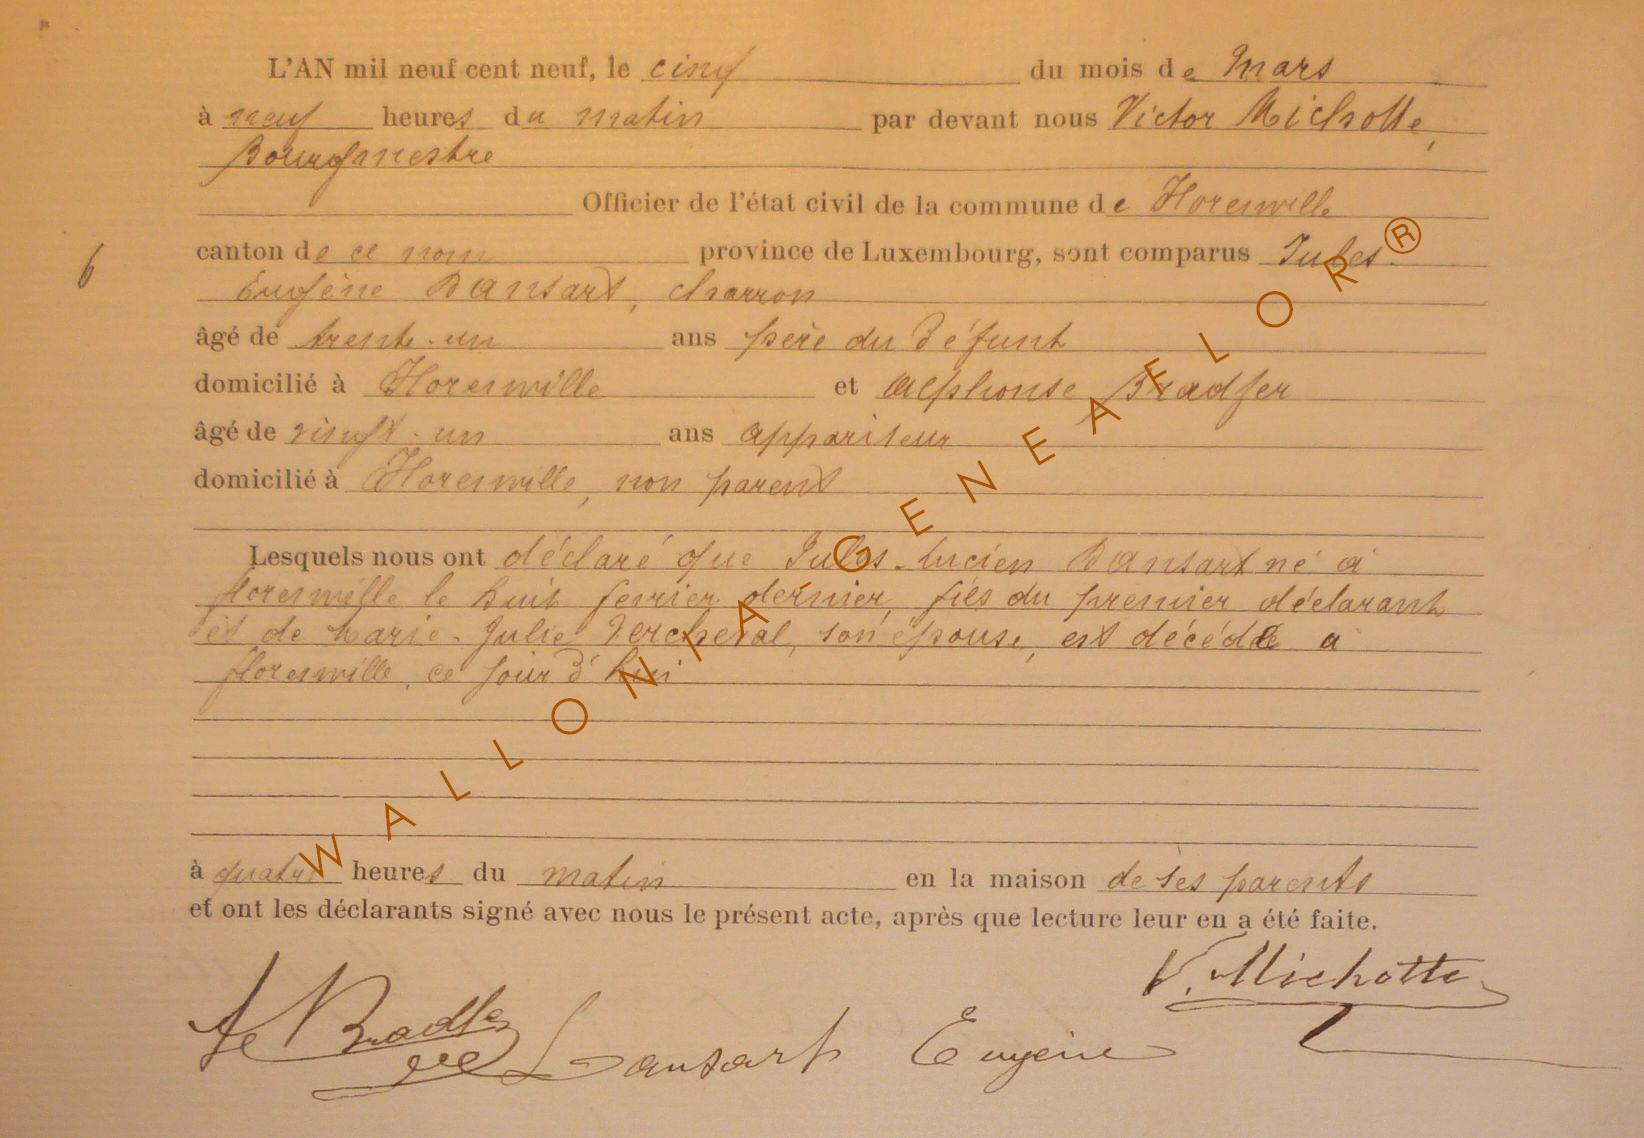 L'AN mil neuf cent neuf, le cinq du mois de Mars
à neuf heures du matin par devant nous Victor Michotte,
Bourgmestre
Officier de l'état civil de la commune de Florenville
canton de ce nom province de Luxembourg, sont comparus Jules-
6
Eugène Dansart, charron
âgé de trente-un ans père du défunt
domicilié à Florenville et Alphonse Bradfer
âgé de vingt-un ans appariteur
domicilié à Florenville, non parent
Lesquels nous ont déclaré que Jules-Lucien Dansart né à
florenville le huit fevrier dernier, fils du premier déclarant
et de Marie-Julie, son épouse, est décédé à
florenville, ce jour d'hui
à quatre heures du matin en la maison de ses parents
et ont les déclarants signé avec nous le présent acte, après que lecture leur en a été faite.
V. Michotte
Bradfer Dansart Eugène
WALLONIA GENEAFLOR ®